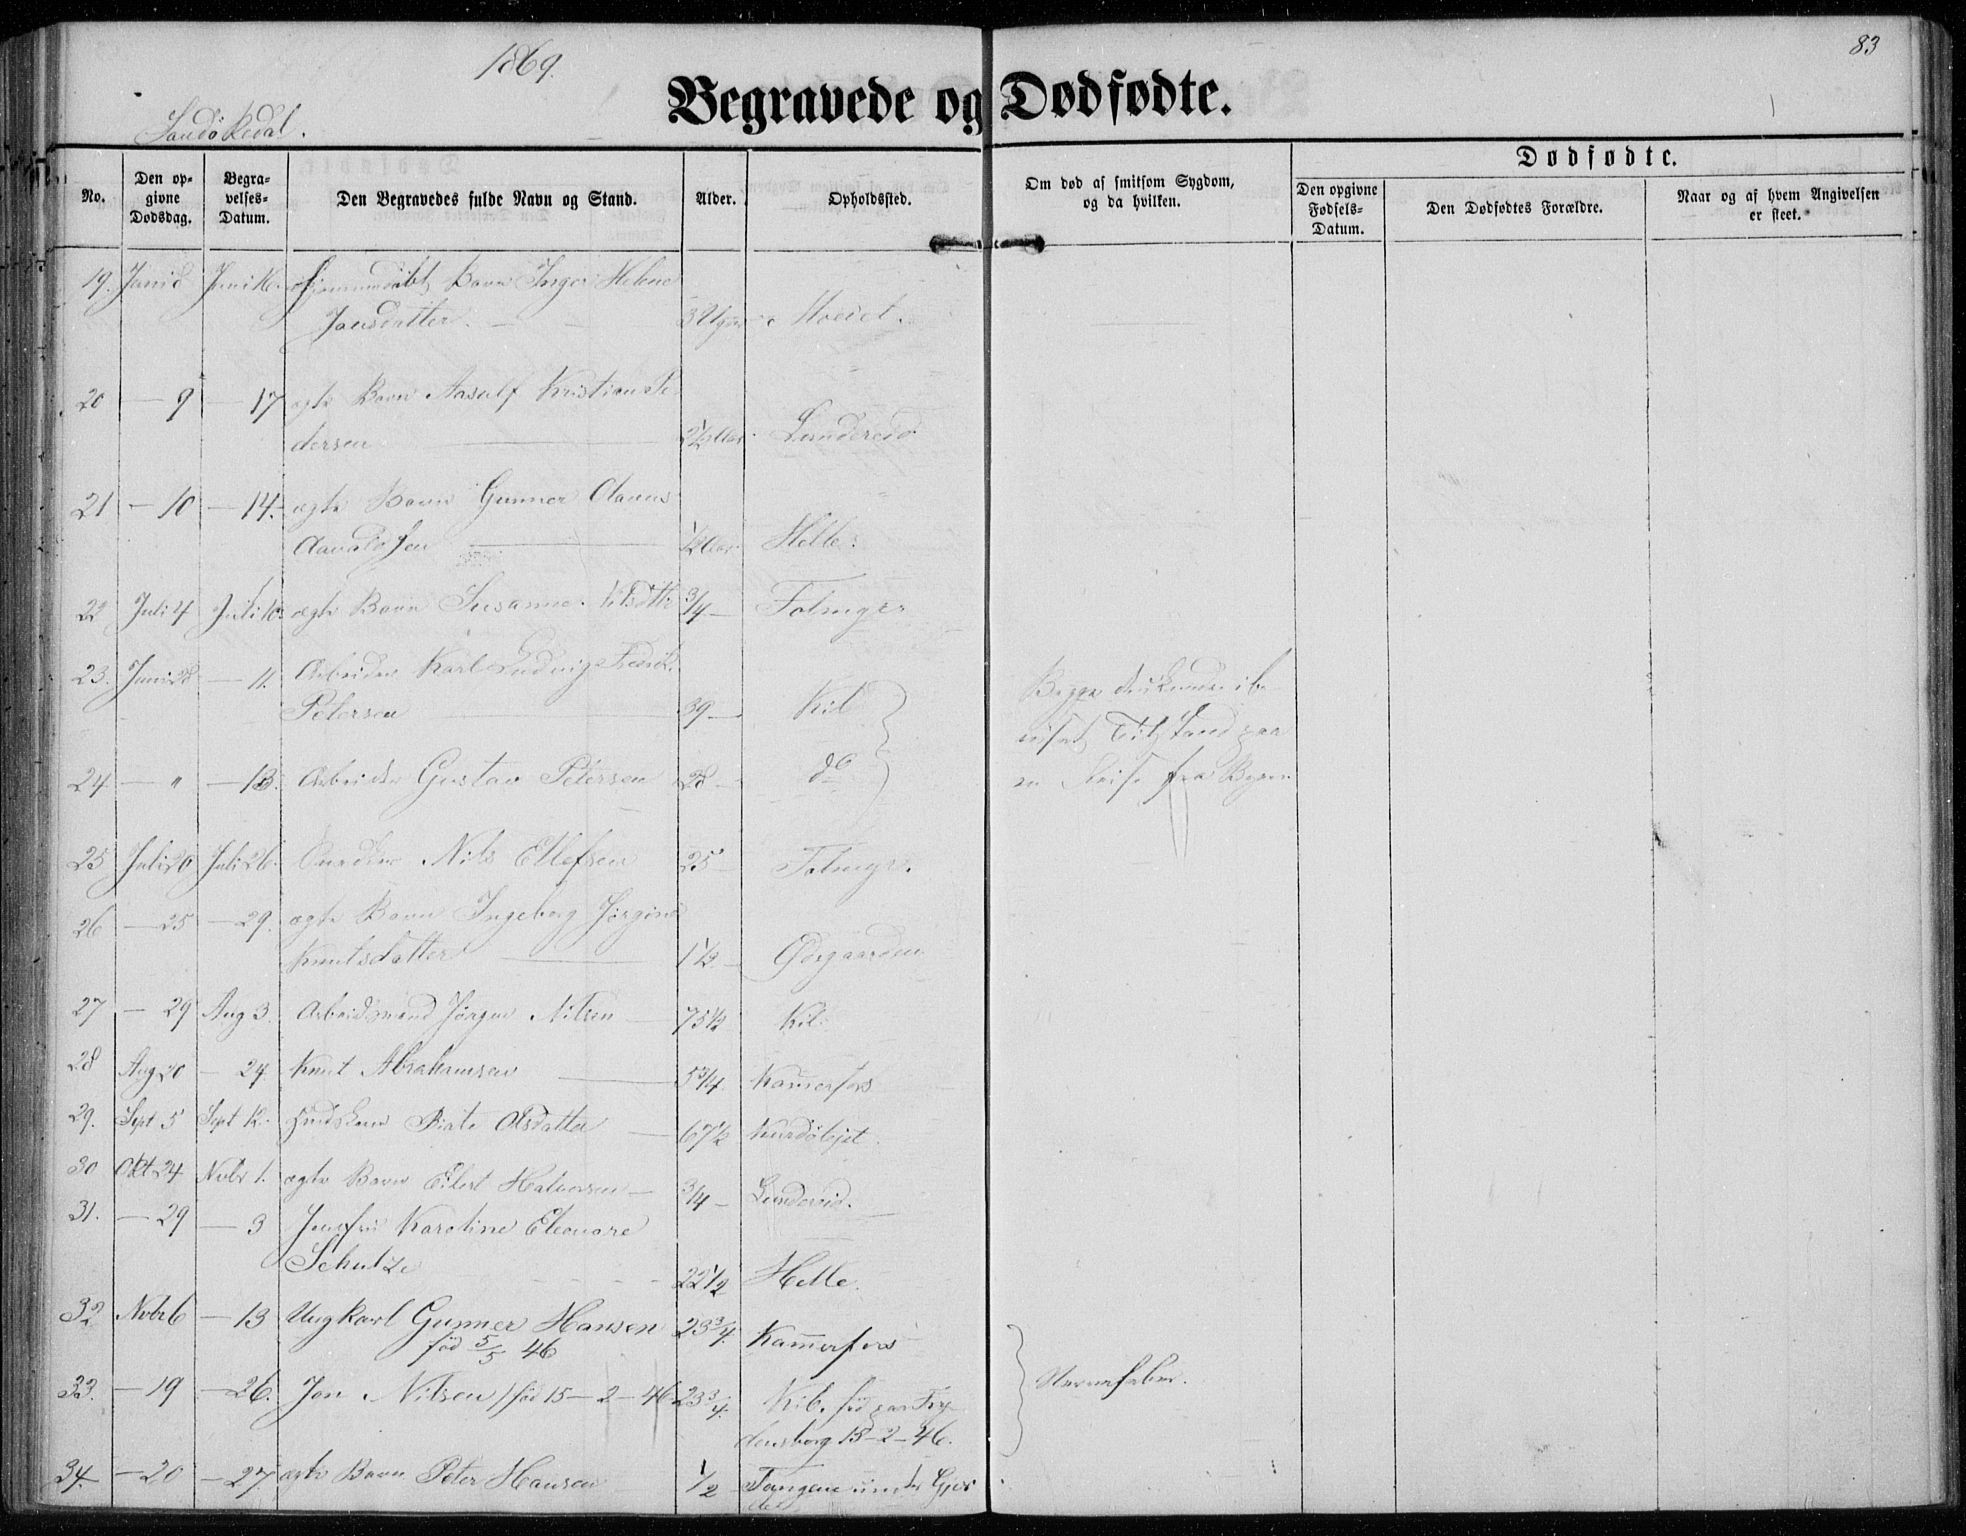 1869.
83
Begravede og Dødfødte.
Sandökedal.
Dødfødte.
No.
Den opgivne Dødsdag.
Begravelses-Datum.
Den Begravedes fulde Navn og Stand.
Alder.
Opholdssted.
Om død af smitsom Sygdom, og da hvilken.
Den opgivne Fødsels-Datum.
Den Dødfødtes Forældre.
Naar og af hvem Angivelsen er skeet.
19. Juni 8 Juni 16. Hjemmedøbt Barn Inger Helene
Jonsdatter. 3 Uger
20 — 9 — 17 ægte Barn Aasulf Kristian Pe
dersen 2½ Aar Lundereid
21 — 10 — 14. ægte Barn Gunner Olavus
½ Aar Helle.
22 Juli 4 Juli 10. ægte Barn Susanne 3/4 —
23. Juni 28 — 11. Arbeider Karl Ludvig Fredrik
Petersen 39 — Kil
Begge druknede i be
ruset Tilstand paa
24 — " — 13. Arbeider Gustav Petersen 28 — do
en Reise fra Byen
25 Juli 20 Juli 26. Nils Ellefsen 25 —
26 — 25 — 29. ægte Barn Ingeborg Jørgine
Knutsdatter 1½ — Ødegaarden
27 — 29 Aug 3. Arbeidsmand Jörgen Nilsen 75½ Kil.
28 Aug 20 — 24. Knut Abrahamsen 5 3/4 Kammerfos
29. Sept 5 Sept 12. Olsdatter 67½
30 Okt 24 Novbr 1. ægte Barn Eilert Halvorsen — 3/4 — Lundereid.
31. — 29 — 3 Jomfru Karoline Eleonore
Schulze 22½ Helle.
32 Novbr 6 — 13 Ungkarl Gunner Hansen 23 3/4. Kammerfos
fød 5/5 46
33. — 19 — 26. Jon Nilsen / fød 15 — 2 — 46 23 3/4. Kil. fød paa Fry
densborg 15-2-46.
Nervefeber.
34. — 20 — 27 ægte Barn Peter Hansen 1/2 Tangen under Gjer
det